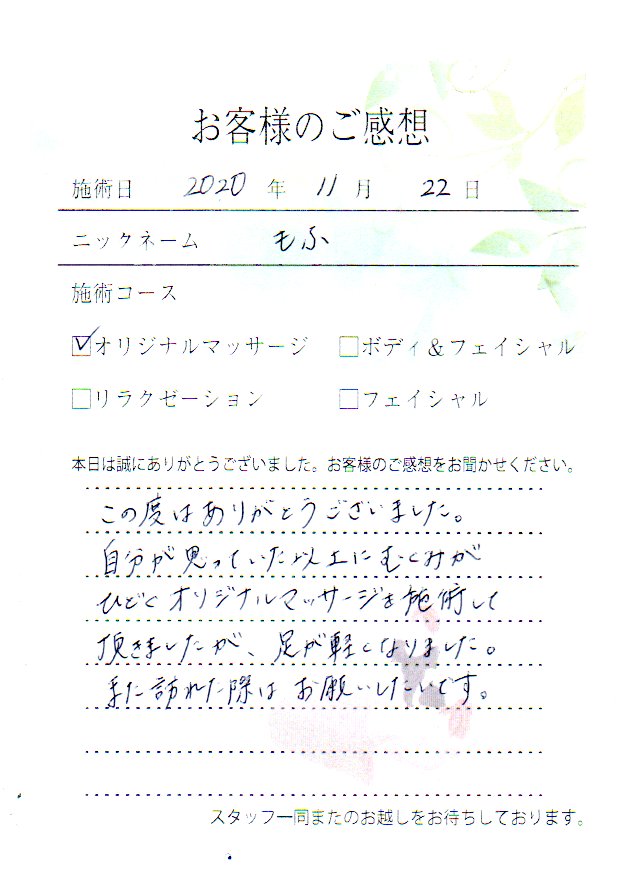 お客様のご感想
施術日 2020 年 11 月 22 日
ニックネーム もふ
施術コース
☑オリジナルマッサージ □ボディ＆フェイシャル
□リラクゼーション □フェイシャル
本日は誠にありがとうございました。お客様のご感想をお聞かせください。
この度はありがとうございました。
自分が思っていた以上にむくみが
ひどくオリジナルマッサージを施術して
頂きましたが、足が軽くなりました。
また訪れた際はお願いしたいです。
スタッフ一同またのお越しをお待ちしております。